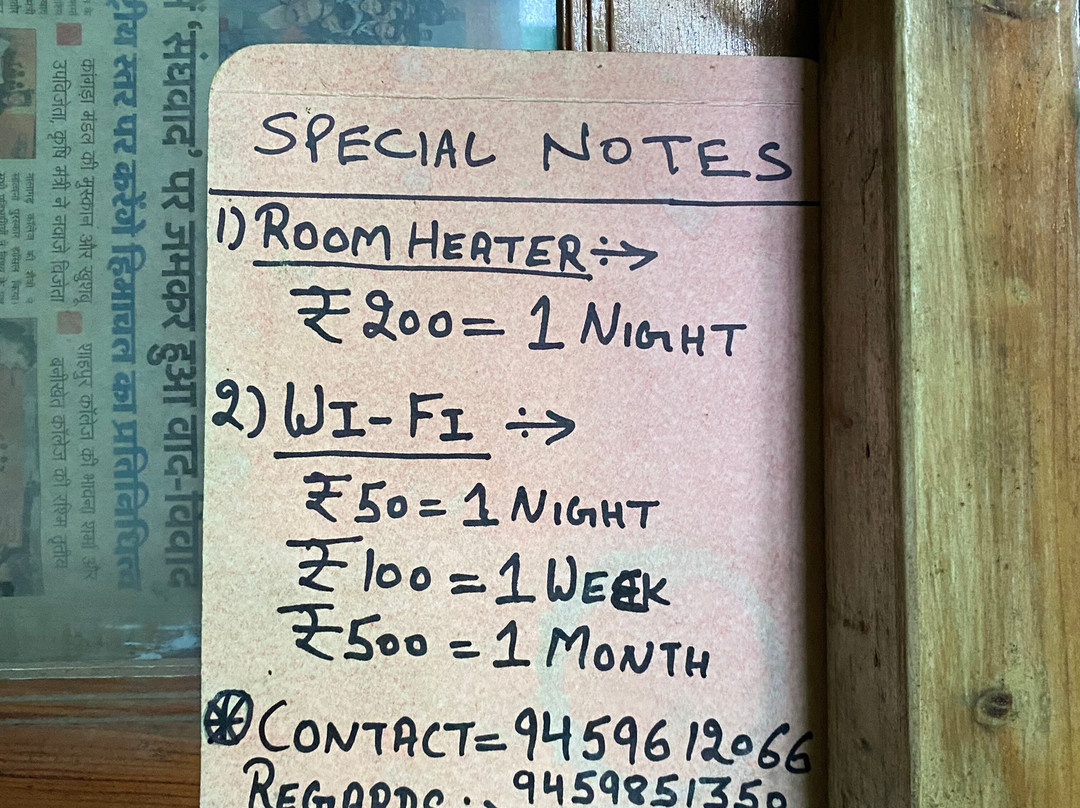 SPECIAL NOTES
1) ROOM HEATER ÷→
₹ 200 = 1 NIGHT
2) WI-FI ÷→
₹ 50 = 1 NIGHT
₹ 100 = 1 WEEK
₹ 500 = 1 MONTH
CONTACT = 9459612066
REGARDS :. 9459851350
'संघवाद' पर जमकर हुआ वाद-विवाद
स्तर पर करेंगे हिमाचल का प्रतिनिधित्व
कांगड़ा मंडल की मुस्कान और खुशबू
उपविजेता, कृषि मंत्री ने नवाजे विजेता
शाहपुर कॉलेज की भावना